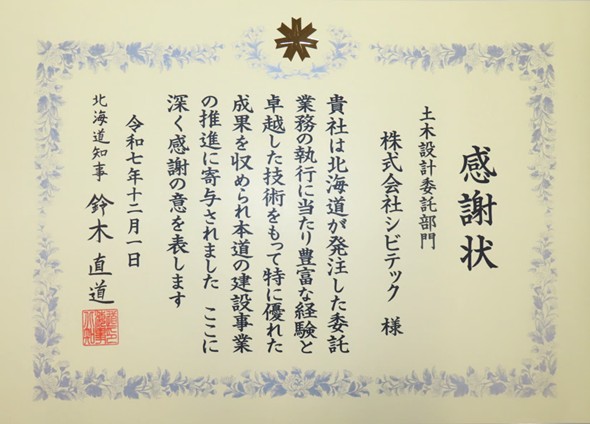 感謝状
土木設計委託部門
株式会社シビテック 様
貴社は北海道が発注した委託
業務の執行に当たり豊富な経験と
卓越した技術をもって特に優れた
成果を収められ本道の建設事業
の推進に寄与されました ここに
深く感謝の意を表します
令和七年十二月一日
北海道知事 鈴木直道